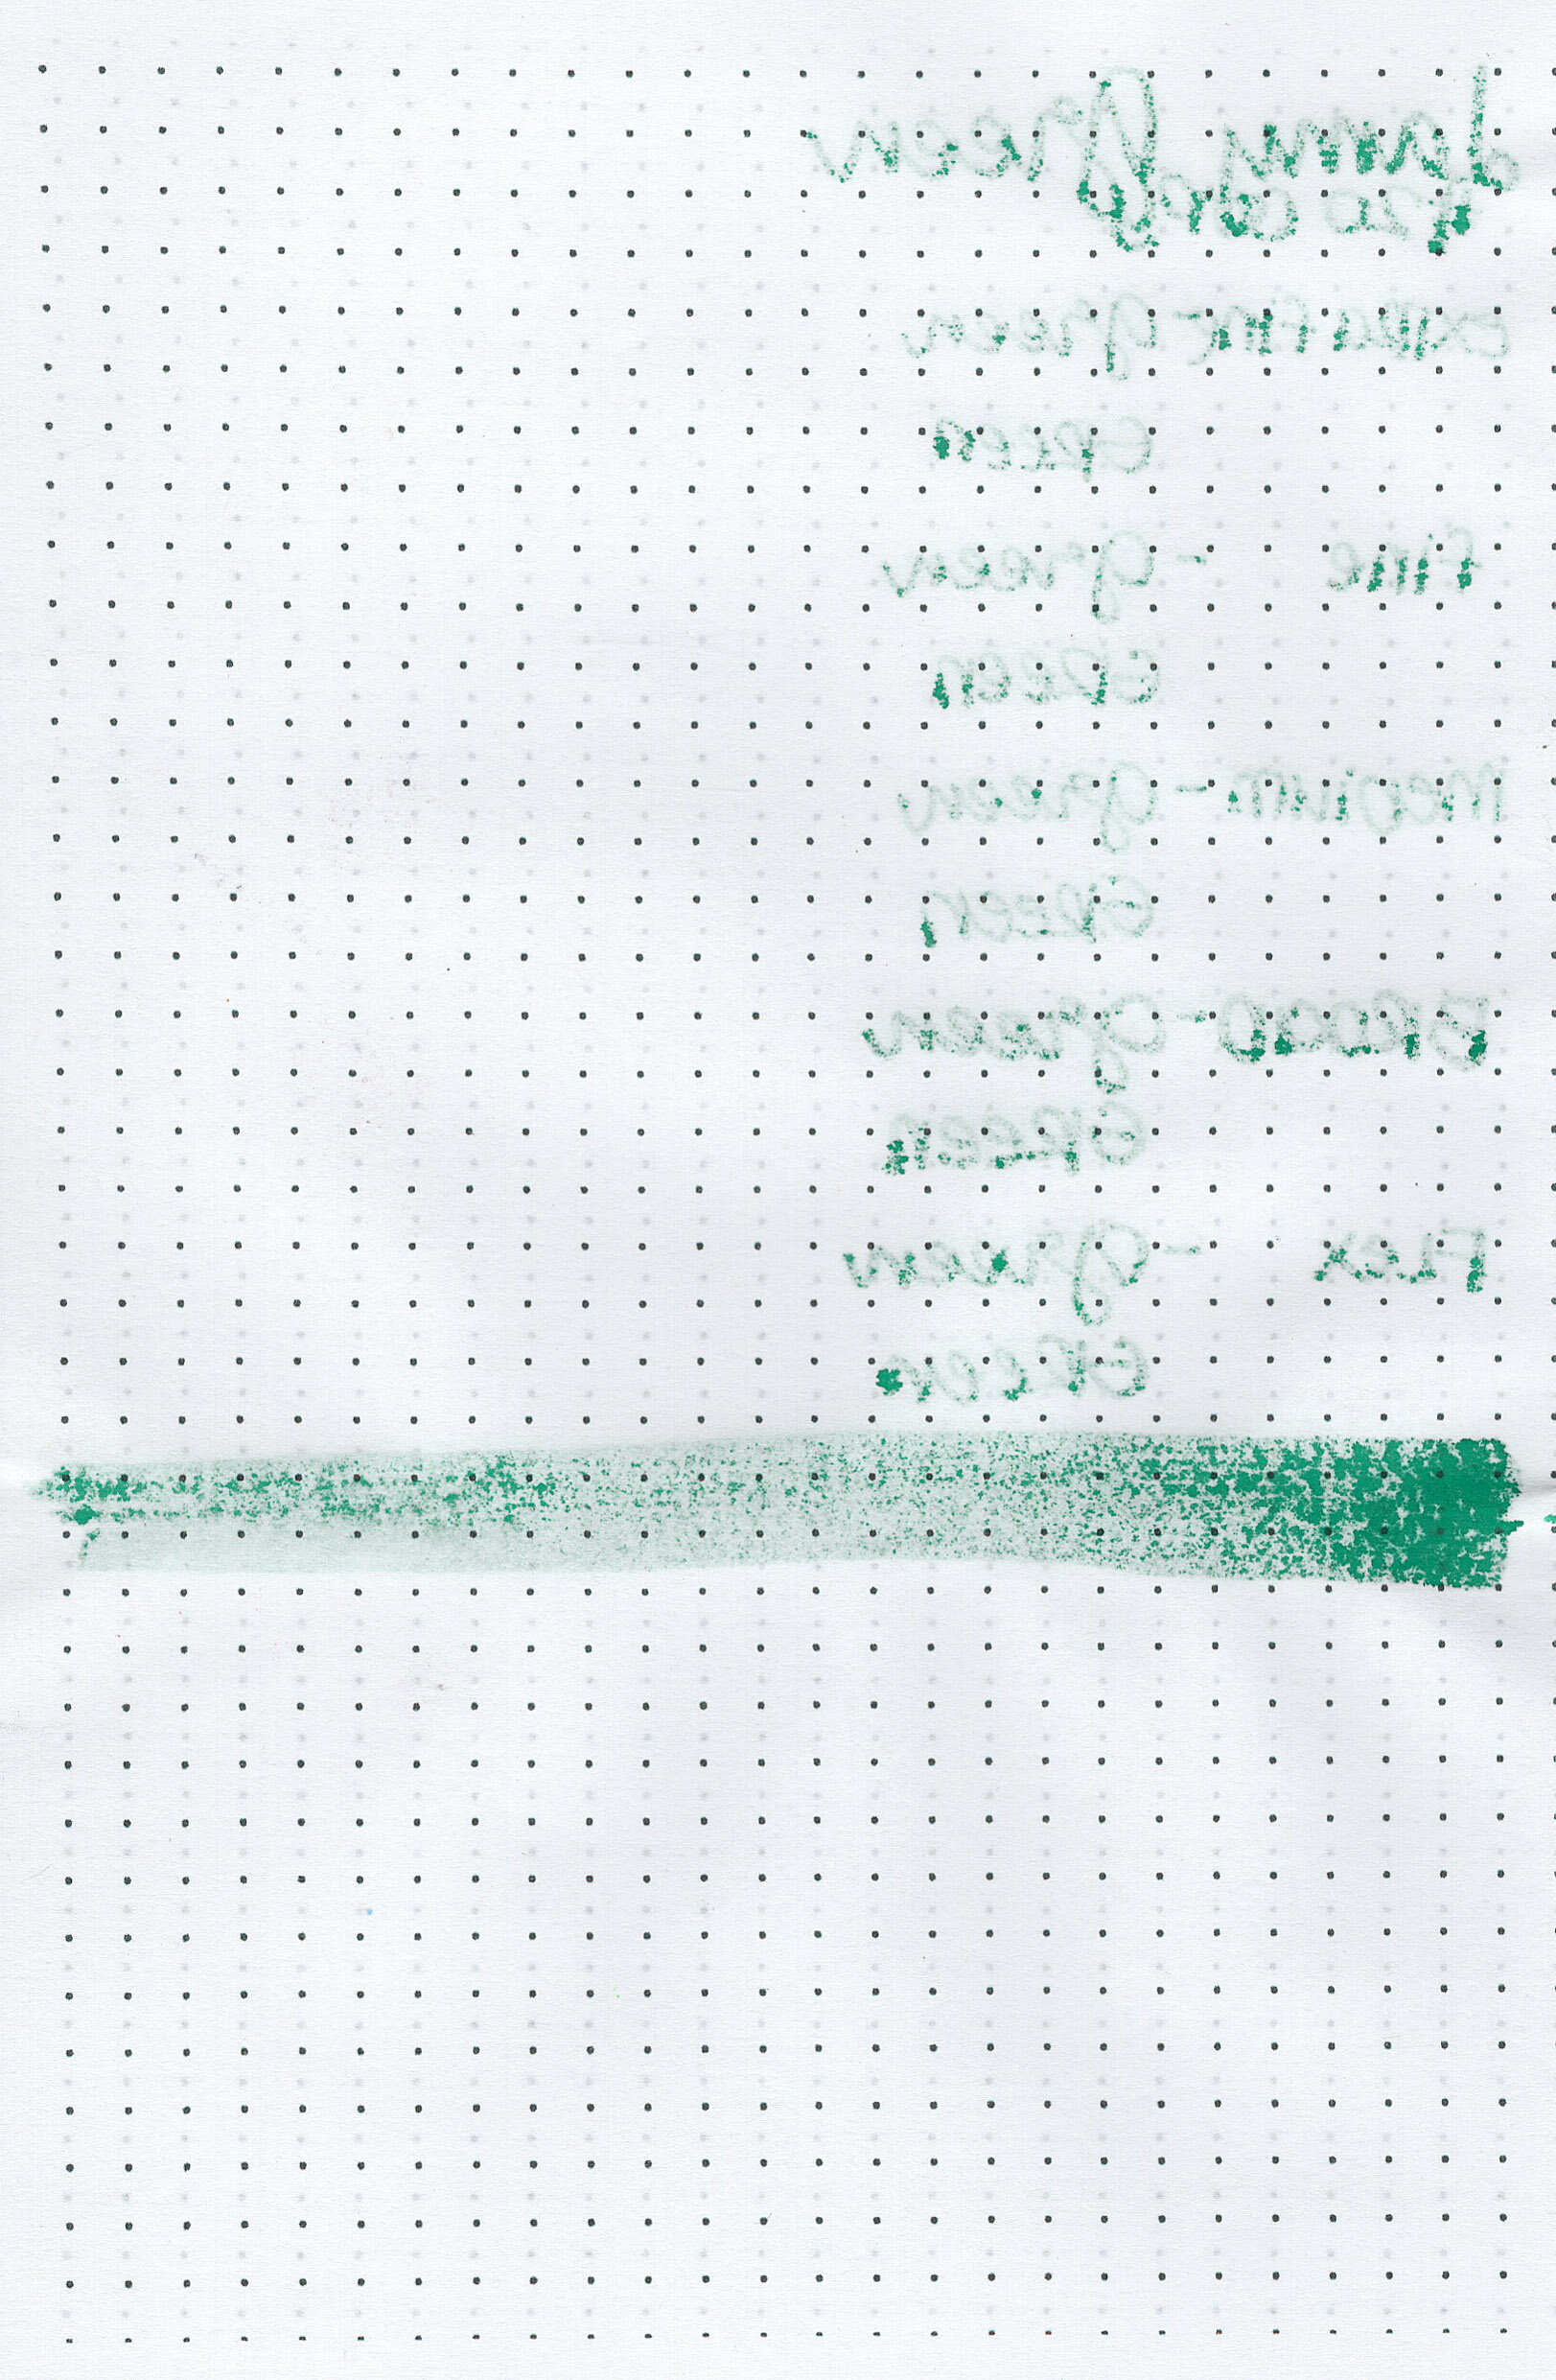 Lamy Green
Extra Fine - Green
Green
Fine - Green
Green
Medium - Green
Green
Broad - Green
Green
Flex - Green
Green